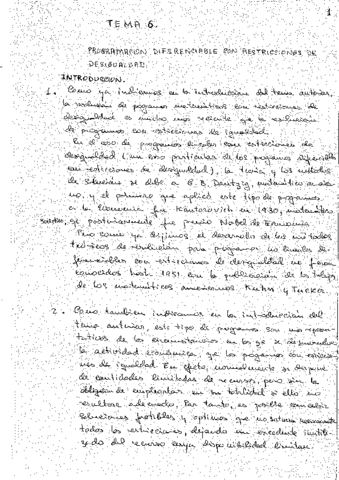 1
TEMA 6.
PROGRAMACION DIFERENCIABLE CON RESTRICCIONES DE
DESIGUALDAD.
INTRODUCCION.
1. Como ya indicamos en la introducción del tema anterior,
la resolución de programas matemáticos con restricciones de
desigualdad es mucho más reciente que la resolución
de programas con restricciones de igualdad.
En el caso de programas lineales con restricciones de
desigualdad (un caso particular de los programas diferenciables
con restricciones de desigualdad), la teoría y los métodos
de solución se debe a G.B. Dantzig, matemático
y el primero que aplicó este tipo de programas
a la Economía fue Kantorovich en 1930, matemático
que posteriormente fue premio Nobel de Economía.
Pero como ya dijimos, el desarrollo de los métodos
teóricos de resolución para programas no lineales di-
ferenciables con restricciones de desigualdad no fueron
conocidos hasta 1951 con la publicación de los trabajos
de los matemáticos americanos Kuhn y Tucker.
2. Como también indicamos en la introducción del
tema anterior, este tipo de programas son más represen-
tativos de las circunstancias en las que se desenvuelve
la actividad económica, que los programas con restriccio-
nes de igualdad. En efecto, normalmente se dispone
de cantidades limitadas de recursos, pero sin la
obligación de emplearlas en su totalidad si ello no
resultase adecuado. Por tanto, es posible
soluciones factibles y óptimas que no saturen necesariamente
todas las restricciones, dejando un excedente inutili-
zado del recurso cuya disponibilidad limitan.